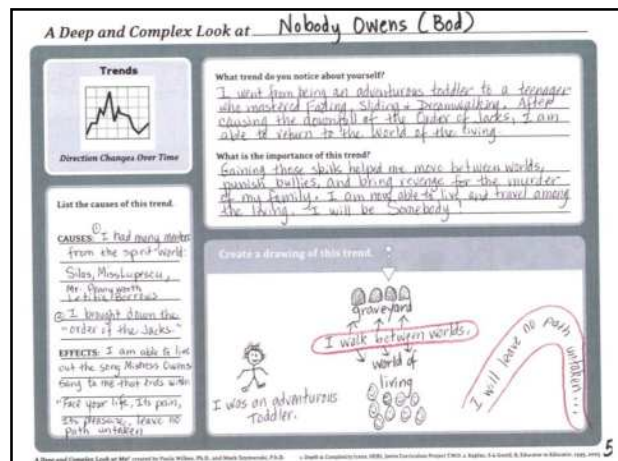 A Deep and Complex Look at Nobody Owens (Bod)
Trends
Direction Changes Over Time
What trend do you notice about yourself?
I went from being an adventurous toddler to a teenager
who mastered Fading, Sliding + Dreamwalking. After
causing the downfall of the Order of Jacks, I am
able to return to the world of the living.
What is the importance of this trend?
Gaining these skills helped me move between worlds,
punish bullies, and bring revenge for the murder
of my family. I am now able to live and travel among
the living. I will be Somebody!
List the causes of this trend.
CAUSES: ① I had many mentors
from the spirit world:
Silas, Miss Lupescu,
Mr. Pennyworth
Letitia Borrows
② I brought down the
"order of the Jacks."
EFFECTS: I am able to live
out the song Mistress Owens
Sang to me that ends with
"Face your life, Its pain,
Its pleasure, leave no
path untaken
Create a drawing of this trend.
graveyard
I walk between worlds.
world of
living
I was an adventurous
Toddler.
I will leave no path untaken...
A Deep and Complex Look at Me! created by Paula Wilkes, Ph.D. and Mark Szymanski, Ph.D.
5